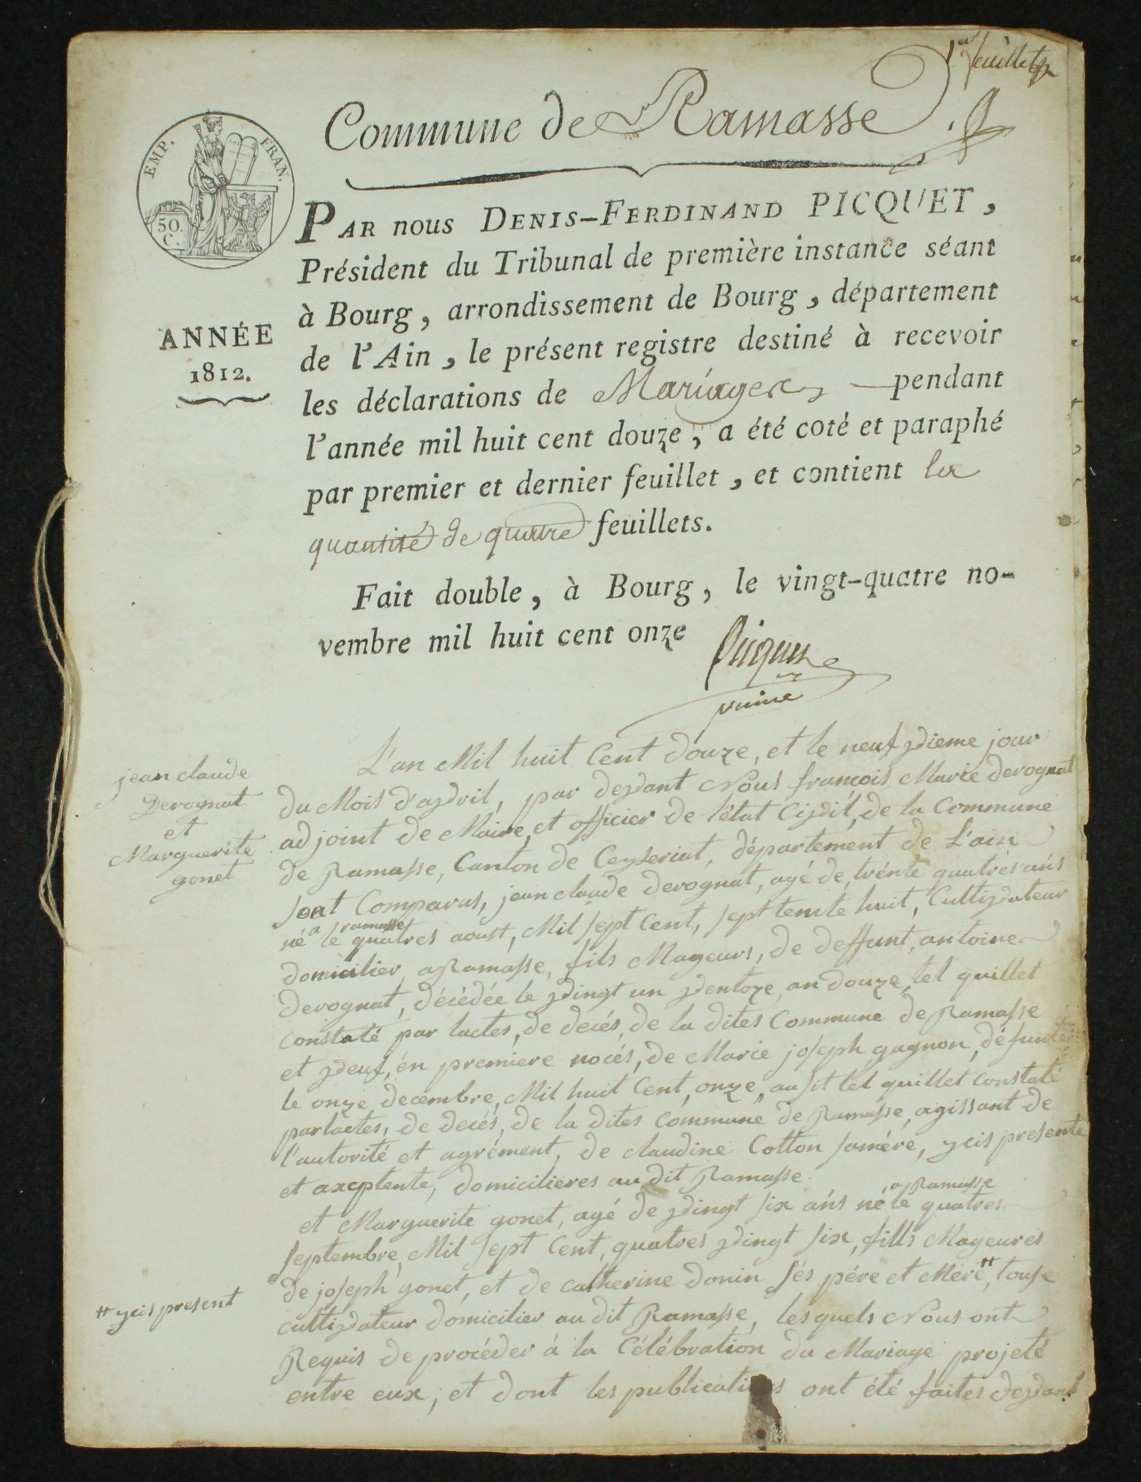 1er feuillet
Commune de Ramasse
EMP. FRAN.
50.
C.
ANNÉE
1812.
PAR nous DENIS-FERDINAND PICQUET,
Président du Tribunal de première instance séant
à Bourg, arrondissement de Bourg, département
de l'Ain, le présent registre destiné à recevoir
les déclarations de Mariages pendant
l'année mil huit cent douze, a été coté et paraphé
par premier et dernier feuillet, et contient la
quantité de quatre feuillets.
Fait double, à Bourg, le vingt-quatre no-
vembre mil huit cent onze
Picquet
jean claude
Derognat
et
Marguerite
gonet
L'an Mil huit Cent douze, et le neufvdieme jour
du Mois d'avdril, par devdant Nous françois Marie derognat
adjoint de Maire, et officier de l'état Civdil, de la Commune
de Ramasse, Canton de Ceyseriat, département de L'ain
sont Comparus, jean claude derognat, agé de, trénte quatres ans
né a ramasse le quatres aoust, Mil sept Cent, sept tente huit, Cultivdateur
domicilier, a Ramasse, fils Mageurs, de deffunt, antoine
derognat, décédée le vdingt un vdentoze, an douze, tel quillet
constaté par lactes, de decés, de la dites Commune de Ramasse
et vdeuf, én premiere nocés, de Marie joseph gagnon, défunte
le onze decembre, Mil huit Cent, onze, ausit tel quillet constaté
par lactes, de decés, de la dites Commune de Ramasse, agissant de
l'autorité et agrément, de claudine Cotton saméré, ycis presente
et axcptente, domicilieres au dit Ramasse
et Marguerite gonet, agé de vdingt six ans né a Ramasse le quatres
septembre, Mil sept Cent, quatres vdingt six, fills Mageures
de joseph gonet, et de catherine donin sés pére et Mere ††, touse
cultivdateur domicilier au dit Ramasse, lesquels Nous ont
†† ycis present
Requis de procéder à la Célébration du Mariage projeté
entre eux, et dont les publications ont été faites devdant